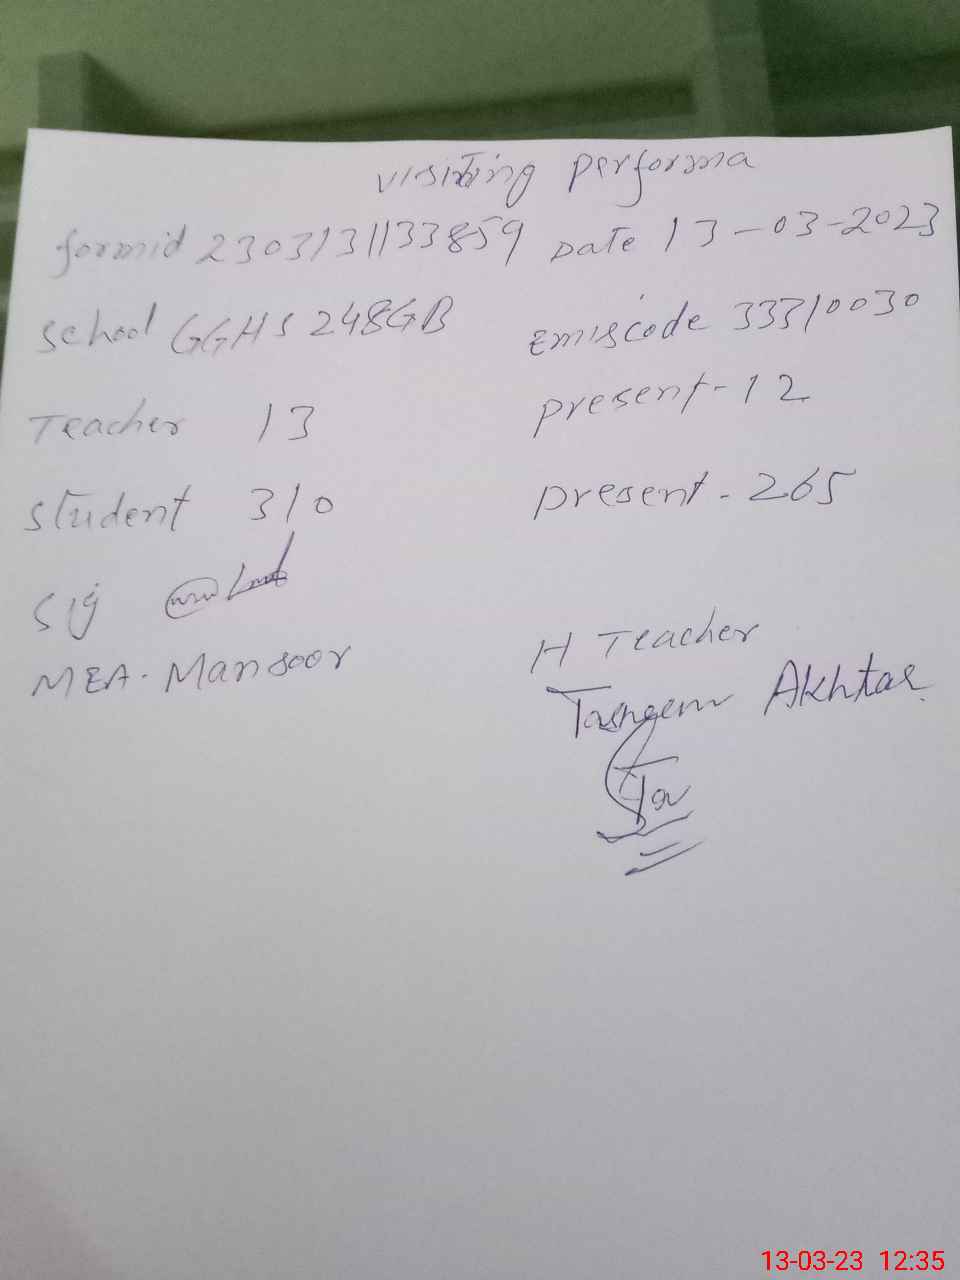 visiting performa
formid 2303131133859 Date 13-03-2023
School GGHS 248GB Emiscode 33310030
Teacher 13 present-12
student 310 present-265
Sig
MEA. Mansoor H Teacher
Tasneem Akhtar
13-03-23 12:35